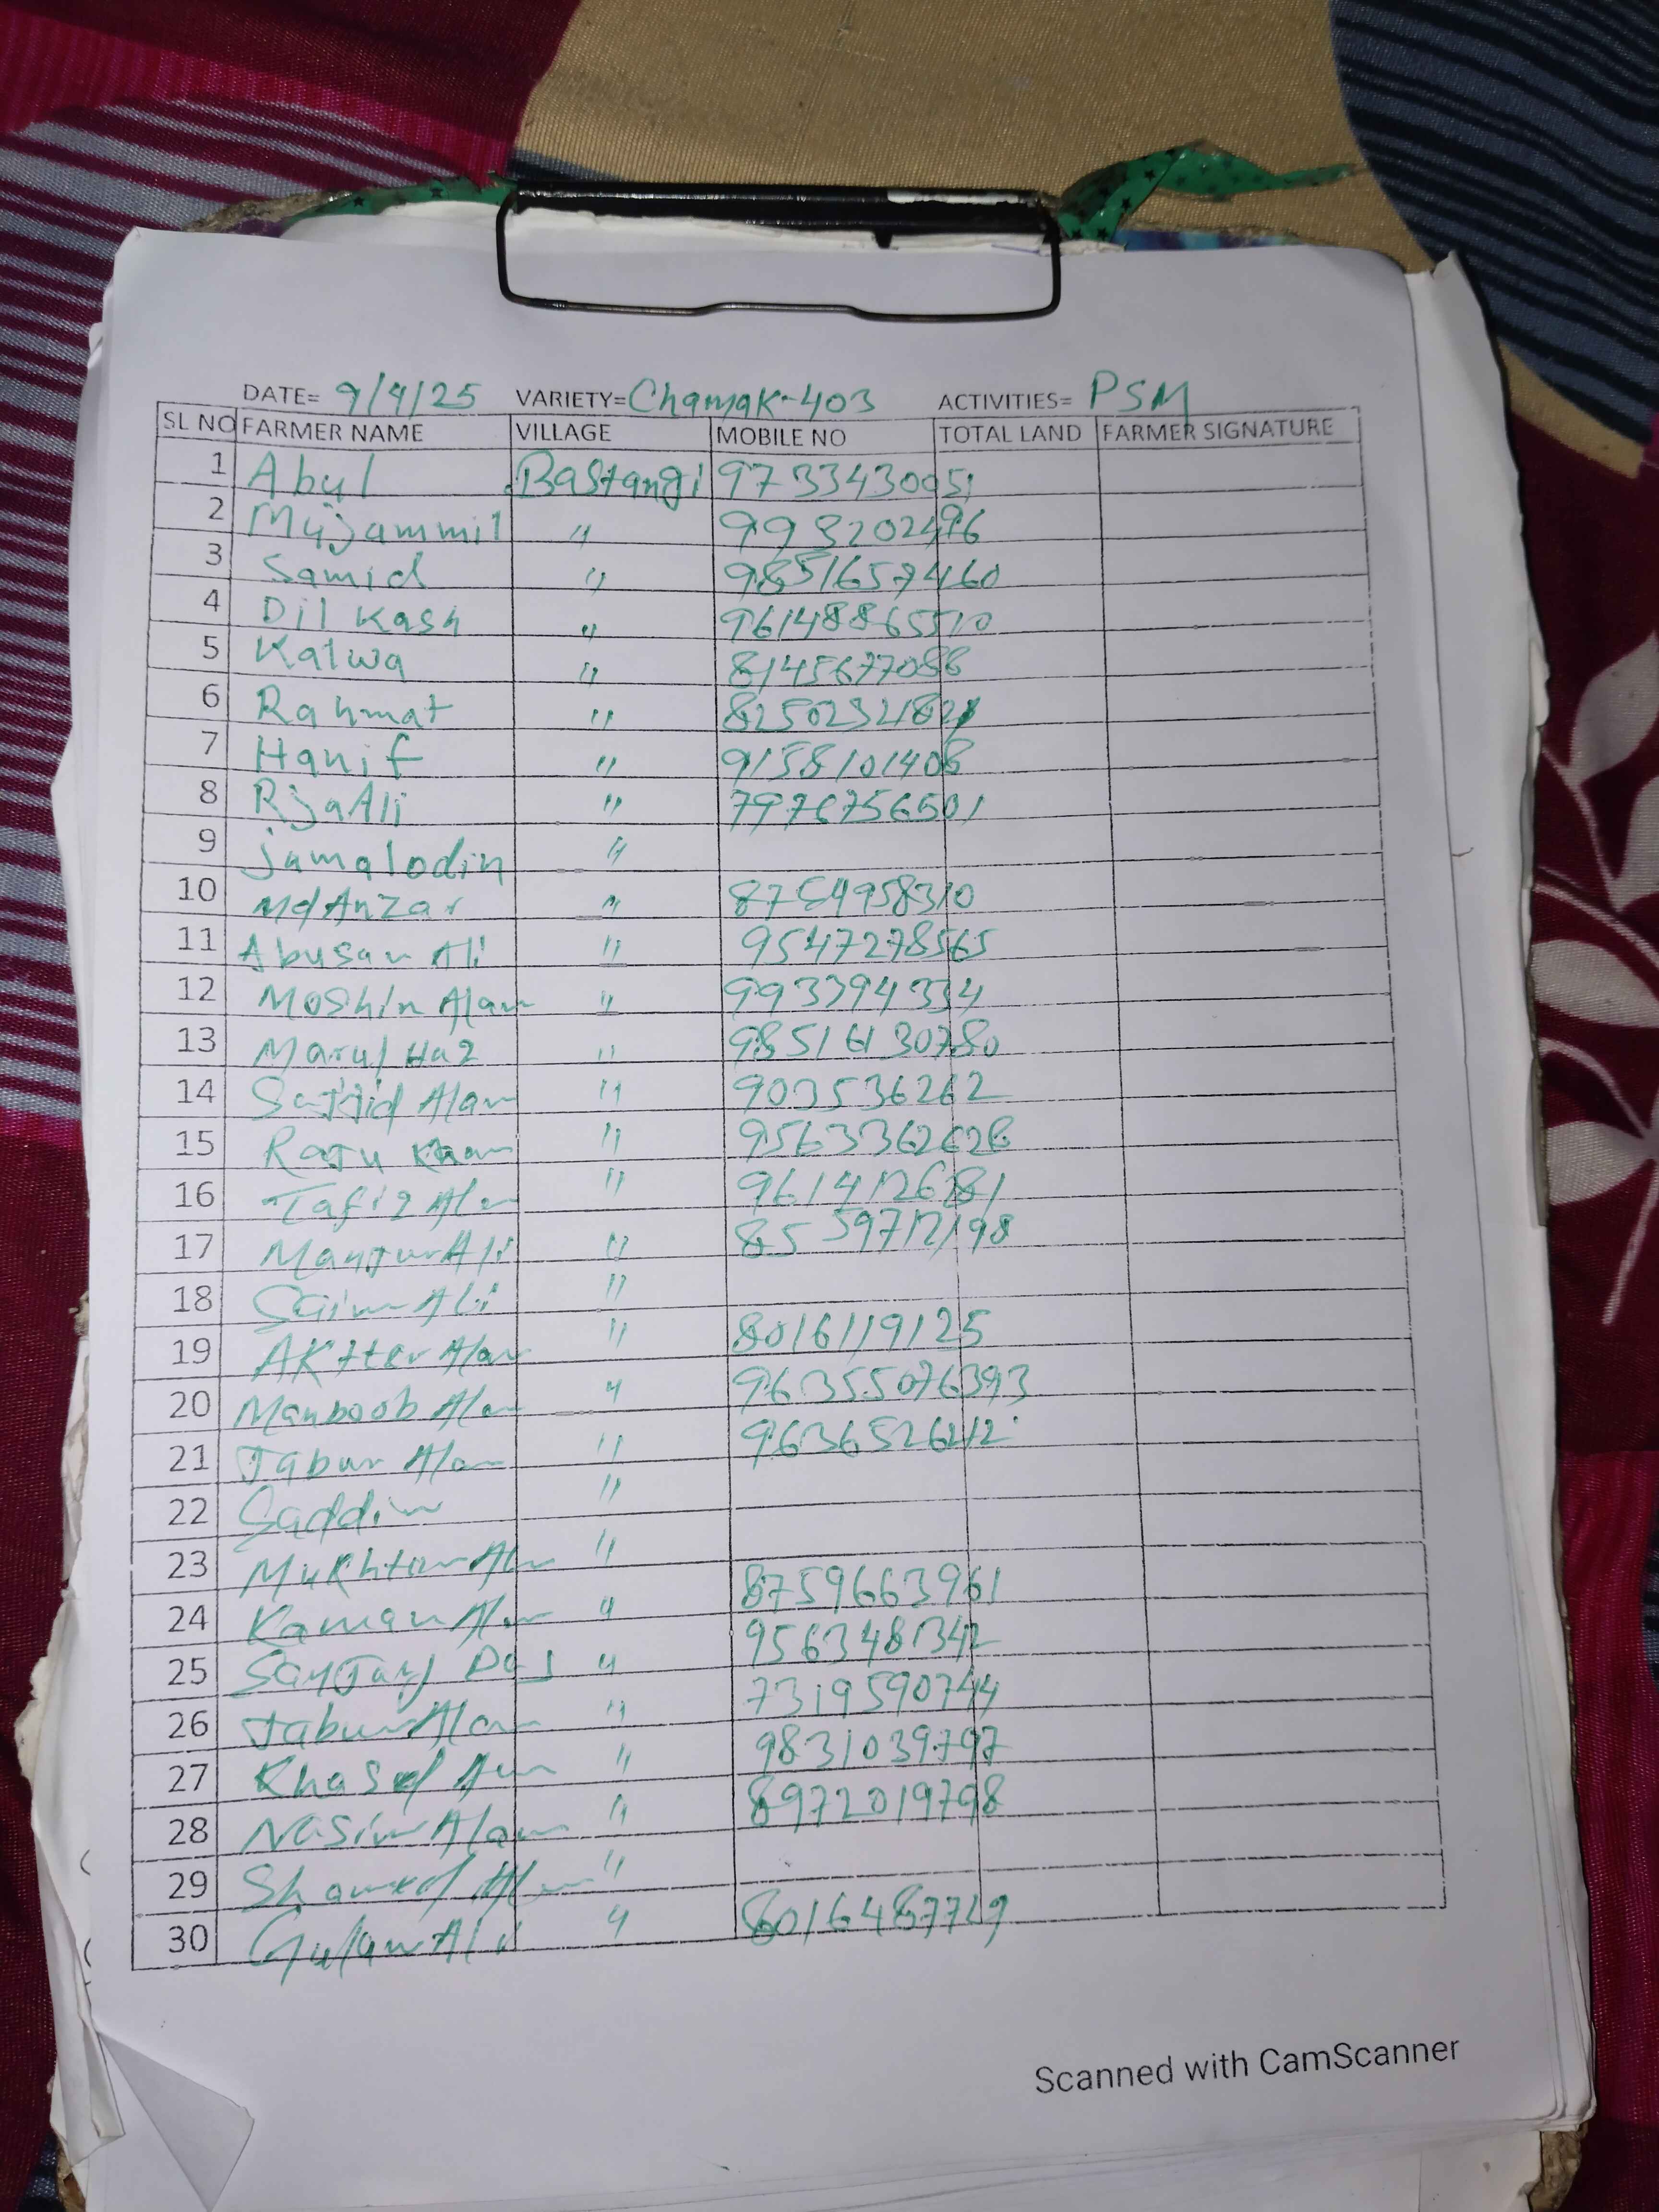 DATE= 9/4/25 VARIETY=Chamak-403 ACTIVITIES= PSM
SL NO FARMER NAME VILLAGE MOBILE NO TOTAL LAND FARMER SIGNATURE
1 Abul Bastangi 9733430051
2 Mujammil " 993202496
3 Samid " 9851657460
4 Dil Kash " 96148865510
5 Kalwa " 8145677088
6 Rahmat "
7 Hanif " 9158101408
8 RjaAli " 7976756501
9 jamalodin "
10 Md Anzar " 8754958310
11 Abusan Ali " 9547278565
12 Moshin Alam " 993394334
13 Maruf Haq "
14 Sajjid Alam " 903536262
15 Raju "
16 Tafiz Alam "
17 Manjur Ali " 8559712198
18 Saim Ali "
19 AKtter Alam " 8016119125
20 Manboob Alam " 963555076393
21 Jabur Alam "
22 Saddim "
23 Mukhtar Alam "
24 Alam " 8759663961
25 Das " 9563481342
26 Jabur Alam " 7319590744
27 " 9831039797
28 Nasim Alam " 8972019798
29 Alam "
30 Gulam Ali " 8016487729
Scanned with CamScanner